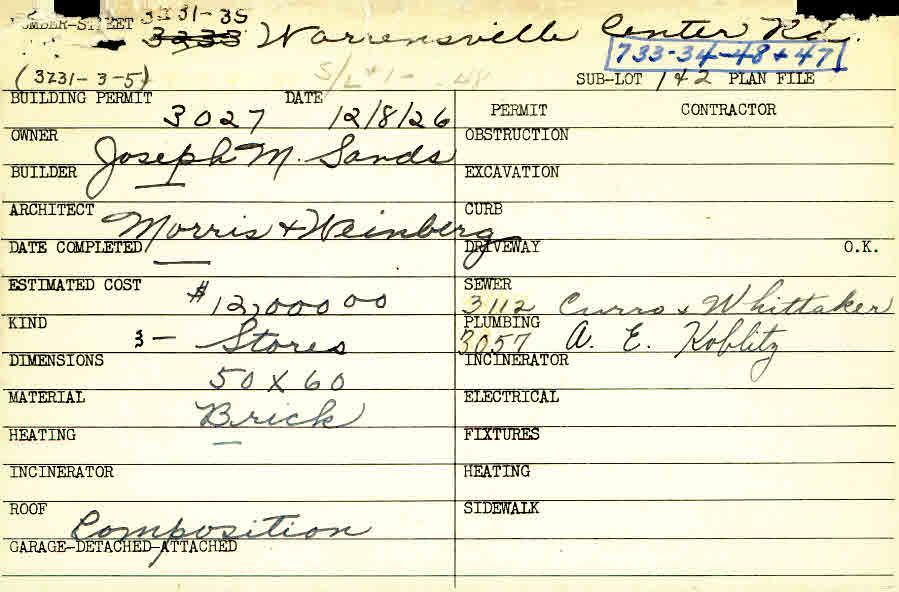 NUMBER-STREET 3231-35
3233 Warrensville Center Rd.
733-34-48+47
(3231-3-5) S/L #1- -48 SUB-LOT 142 PLAN FILE
BUILDING PERMIT DATE PERMIT CONTRACTOR
3027 12/8/26
OWNER OBSTRUCTION
Joseph M. Sands
BUILDER EXCAVATION
—
ARCHITECT CURB
Morris + Weinberg
DATE COMPLETED DRIVEWAY O.K.
—
ESTIMATED COST SEWER
$12,000 00 3112 Curro + Whittaker
KIND PLUMBING
3 - Stores 3057 A. E. Koblitz
DIMENSIONS INCINERATOR
50 X 60
MATERIAL ELECTRICAL
Brick
HEATING FIXTURES
—
INCINERATOR HEATING
ROOF SIDEWALK
Composition
GARAGE-DETACHED-ATTACHED